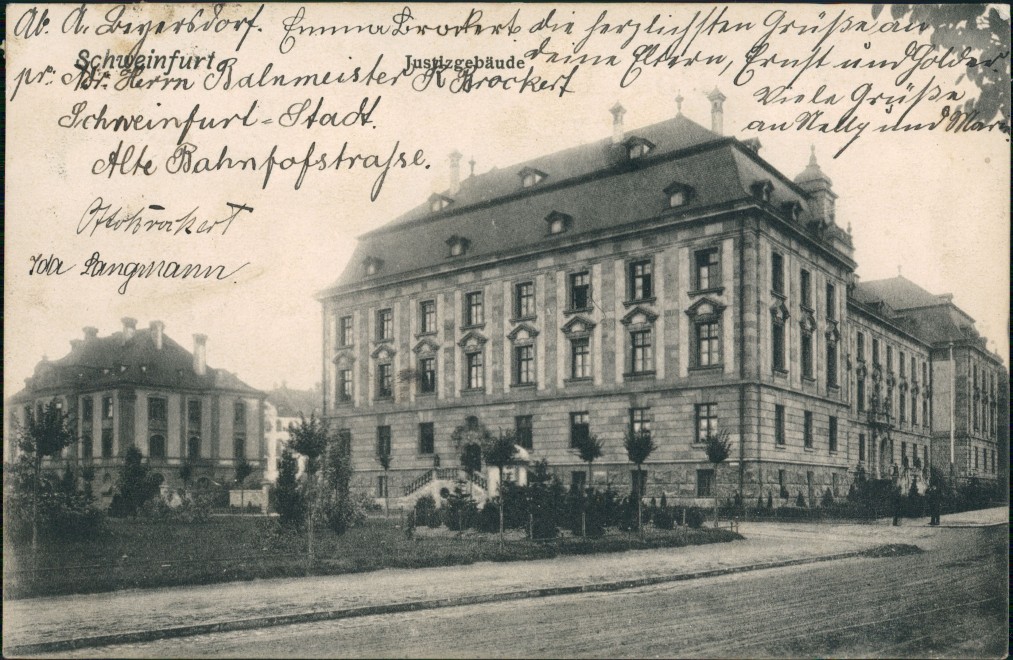 Ab. A. Beyersdorf. Emma Brockert die herzlichsten Grüße an
Schweinfurt Justizgebäude deine Eltern, Ernst und Holder
pr. Adr. Herrn Bahnmeister K Brockert Viele Grüße
Schweinfurt-Stadt. an Nelly und Marie
Alte Bahnhofstraße.
Otto Brockert
Ida Langmann